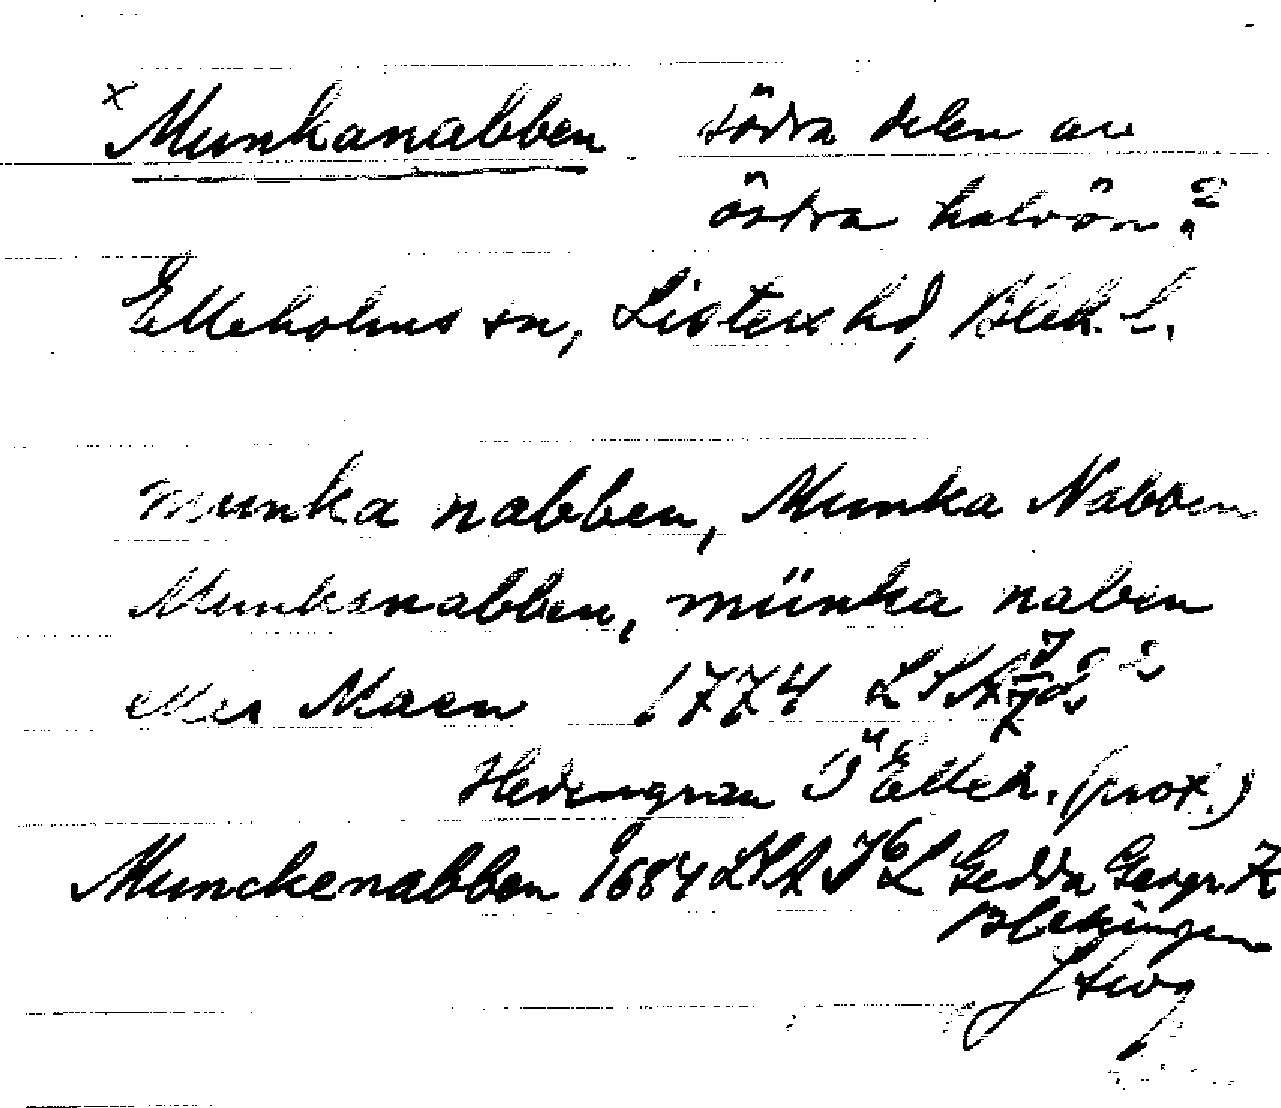 x Munkanabben södra delen av
östra halvön?
Elleholms sn, Listers hd, Blek. l.
munka nabben, Munka Nabben
Munkanabben, münka naben
eller Maen 1774 LSA
Hedengran Ö Elleh. (prot.)
Munckenabben 1684 LSA J6L Gedda Geogr. K
Blekingen